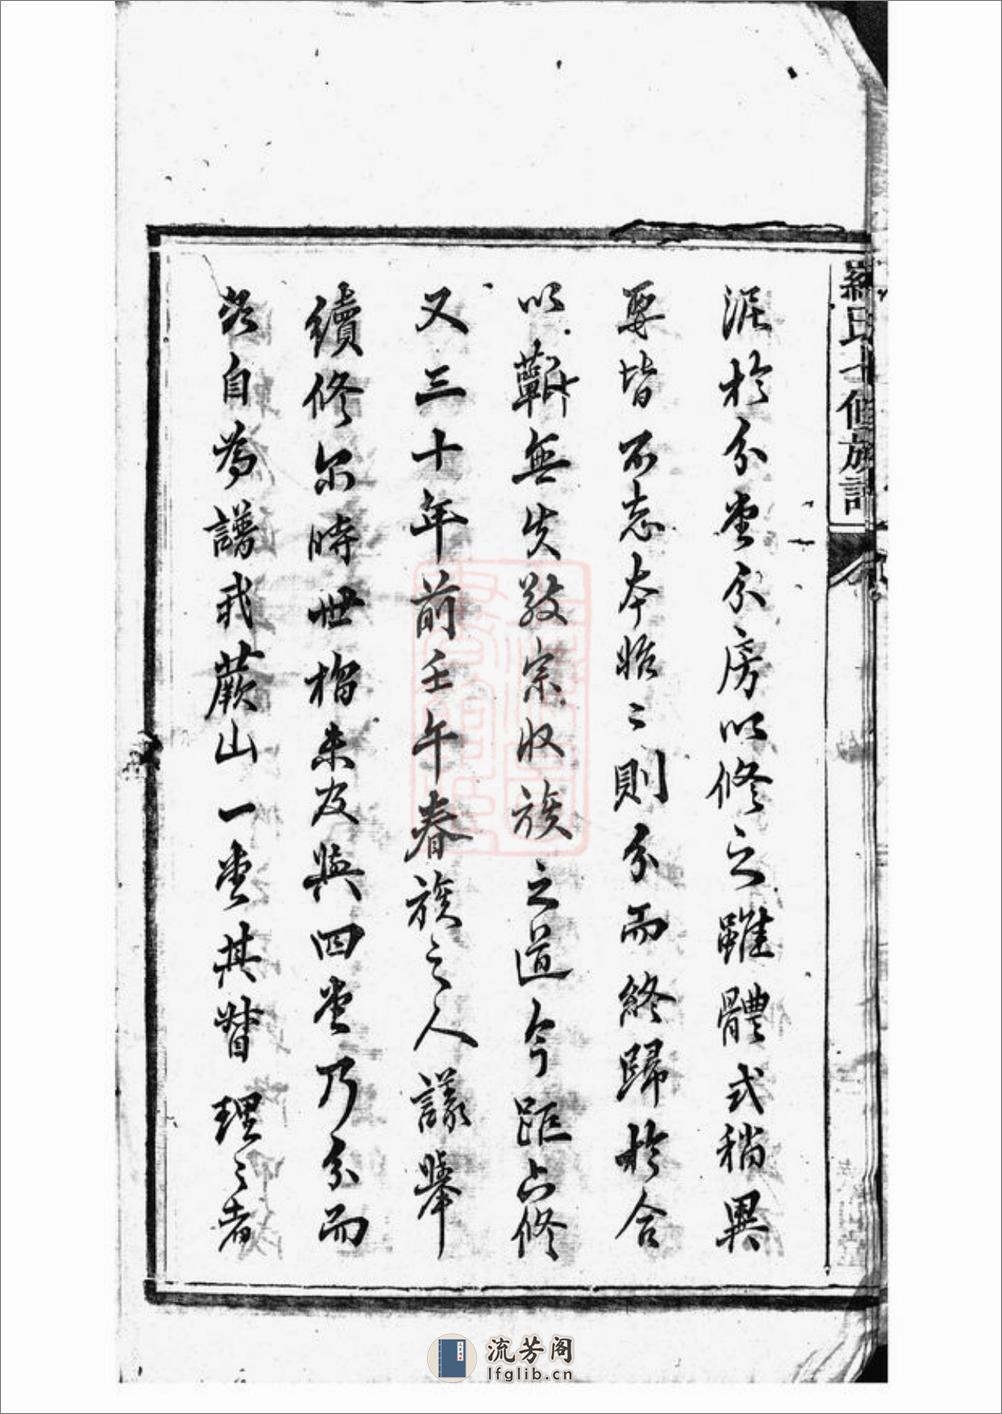 羅氏十修族譜
泥於分堂分房以修之雖體式稍異
要皆不忘本始〻則分而終歸於合
以蘄無失敬宗收族之道今距六修
又三十年前壬午春族之人議舉
續修尔時世榴未及與四堂乃分而
各自為譜我蕨山一堂其督理〻者
流芳阁
lfglib.cn